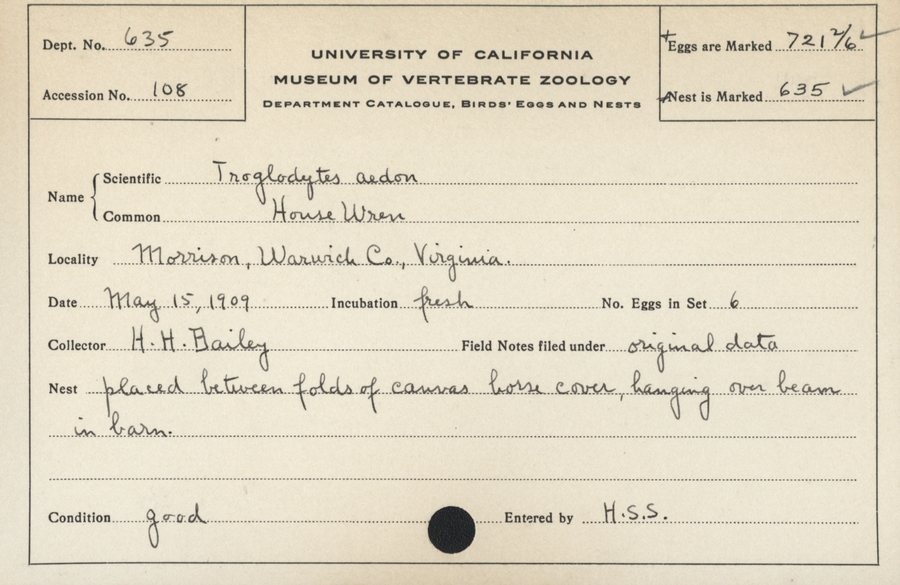 Dept. No. 635
Accession No. 108
UNIVERSITY OF CALIFORNIA
MUSEUM OF VERTEBRATE ZOOLOGY
DEPARTMENT CATALOGUE, BIRDS' EGGS AND NESTS
+Eggs are Marked 721 2/6 ✓
+Nest is Marked 635 ✓
Name { Scientific Troglodytes aedon
Common House Wren
Locality Morrison, Warwick Co., Virginia.
Date May 15, 1909 Incubation fresh No. Eggs in Set 6
Collector H. H. Bailey Field Notes filed under original data
Nest placed between folds of canvas horse cover, hanging over beam
in barn.
Condition good Entered by H.S.S.